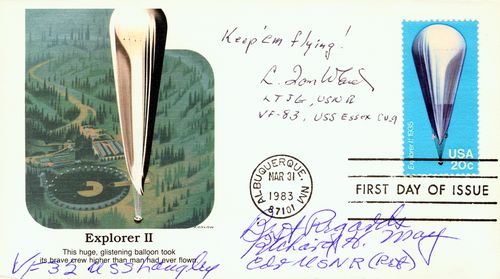 Keep 'em flying!
LTJG, USNR
VF-83, USS Essex CV-9
Explorer II 1935
USA
20c
ALBUQUERQUE, NM
MAR 31
1983
87101
FIRST DAY OF ISSUE
Explorer II
This huge, glistening balloon took
its brave crew higher than man had ever flown.
Best Regards
Richard H. May
Cdr USNR (Ret)
VF 32 USS Langley